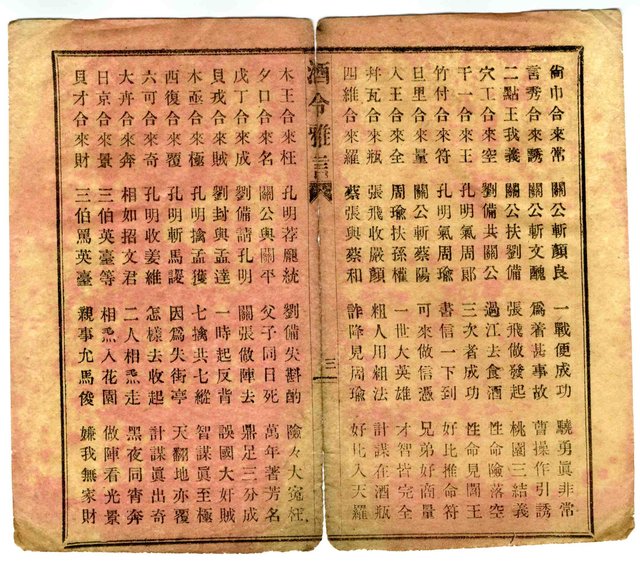 尙巾合來常　關公斬顏良　一戰便成功　驍勇眞非常
言秀合來誘　關公斬文醜　爲着甚事故　曹操作引誘
二點王我義　關公扶劉備　張飛做發起　桃園三結義
穴工合來空　劉備共關公　過江去食酒　性命險落空
干一合來王　孔明氣周郞　三次者成功　性命見閻王
竹付合來符　孔明氣周瑜　書信一下到　好比推命符
旦里合來量　關公斬蔡陽　可來做信憑　兄弟好商量
人王合來全　周瑜扶孫權　一世大英雄　才智皆完全
并瓦合來瓶　張飛收嚴顏　粗人用粗法　計謀在酒瓶
四維合來羅　蔡張與蔡和　詐降見周瑜　好比入天羅
酒令雅言　三
木王合來枉　孔明荐龐統　劉備失斟酌　險々大寃枉
夕口合來名　關公與關平　父子同日死　萬年著芳名
戊丁合來成　劉備請孔明　關張做陣去　鼎足三分成
貝戎合來賊　劉封與孟達　一時起反背　誤國大奸賊
木亟合來極　孔明擒孟獲　七擒共七縱　智謀眞至極
西復合來覆　孔明斬馬謖　因爲失街亭　天翻地亦覆
六可合來奇　孔明收姜維　怎樣去收起　計謀眞出奇
大卉合來奔　相如招文君　二人相𤆬走　黑夜同宵奔
日京合來景　三伯等英臺　相𤆬入花園　做陣看光景
貝才合來財　三伯罵英臺　親事允馬俊　嫌我無家財